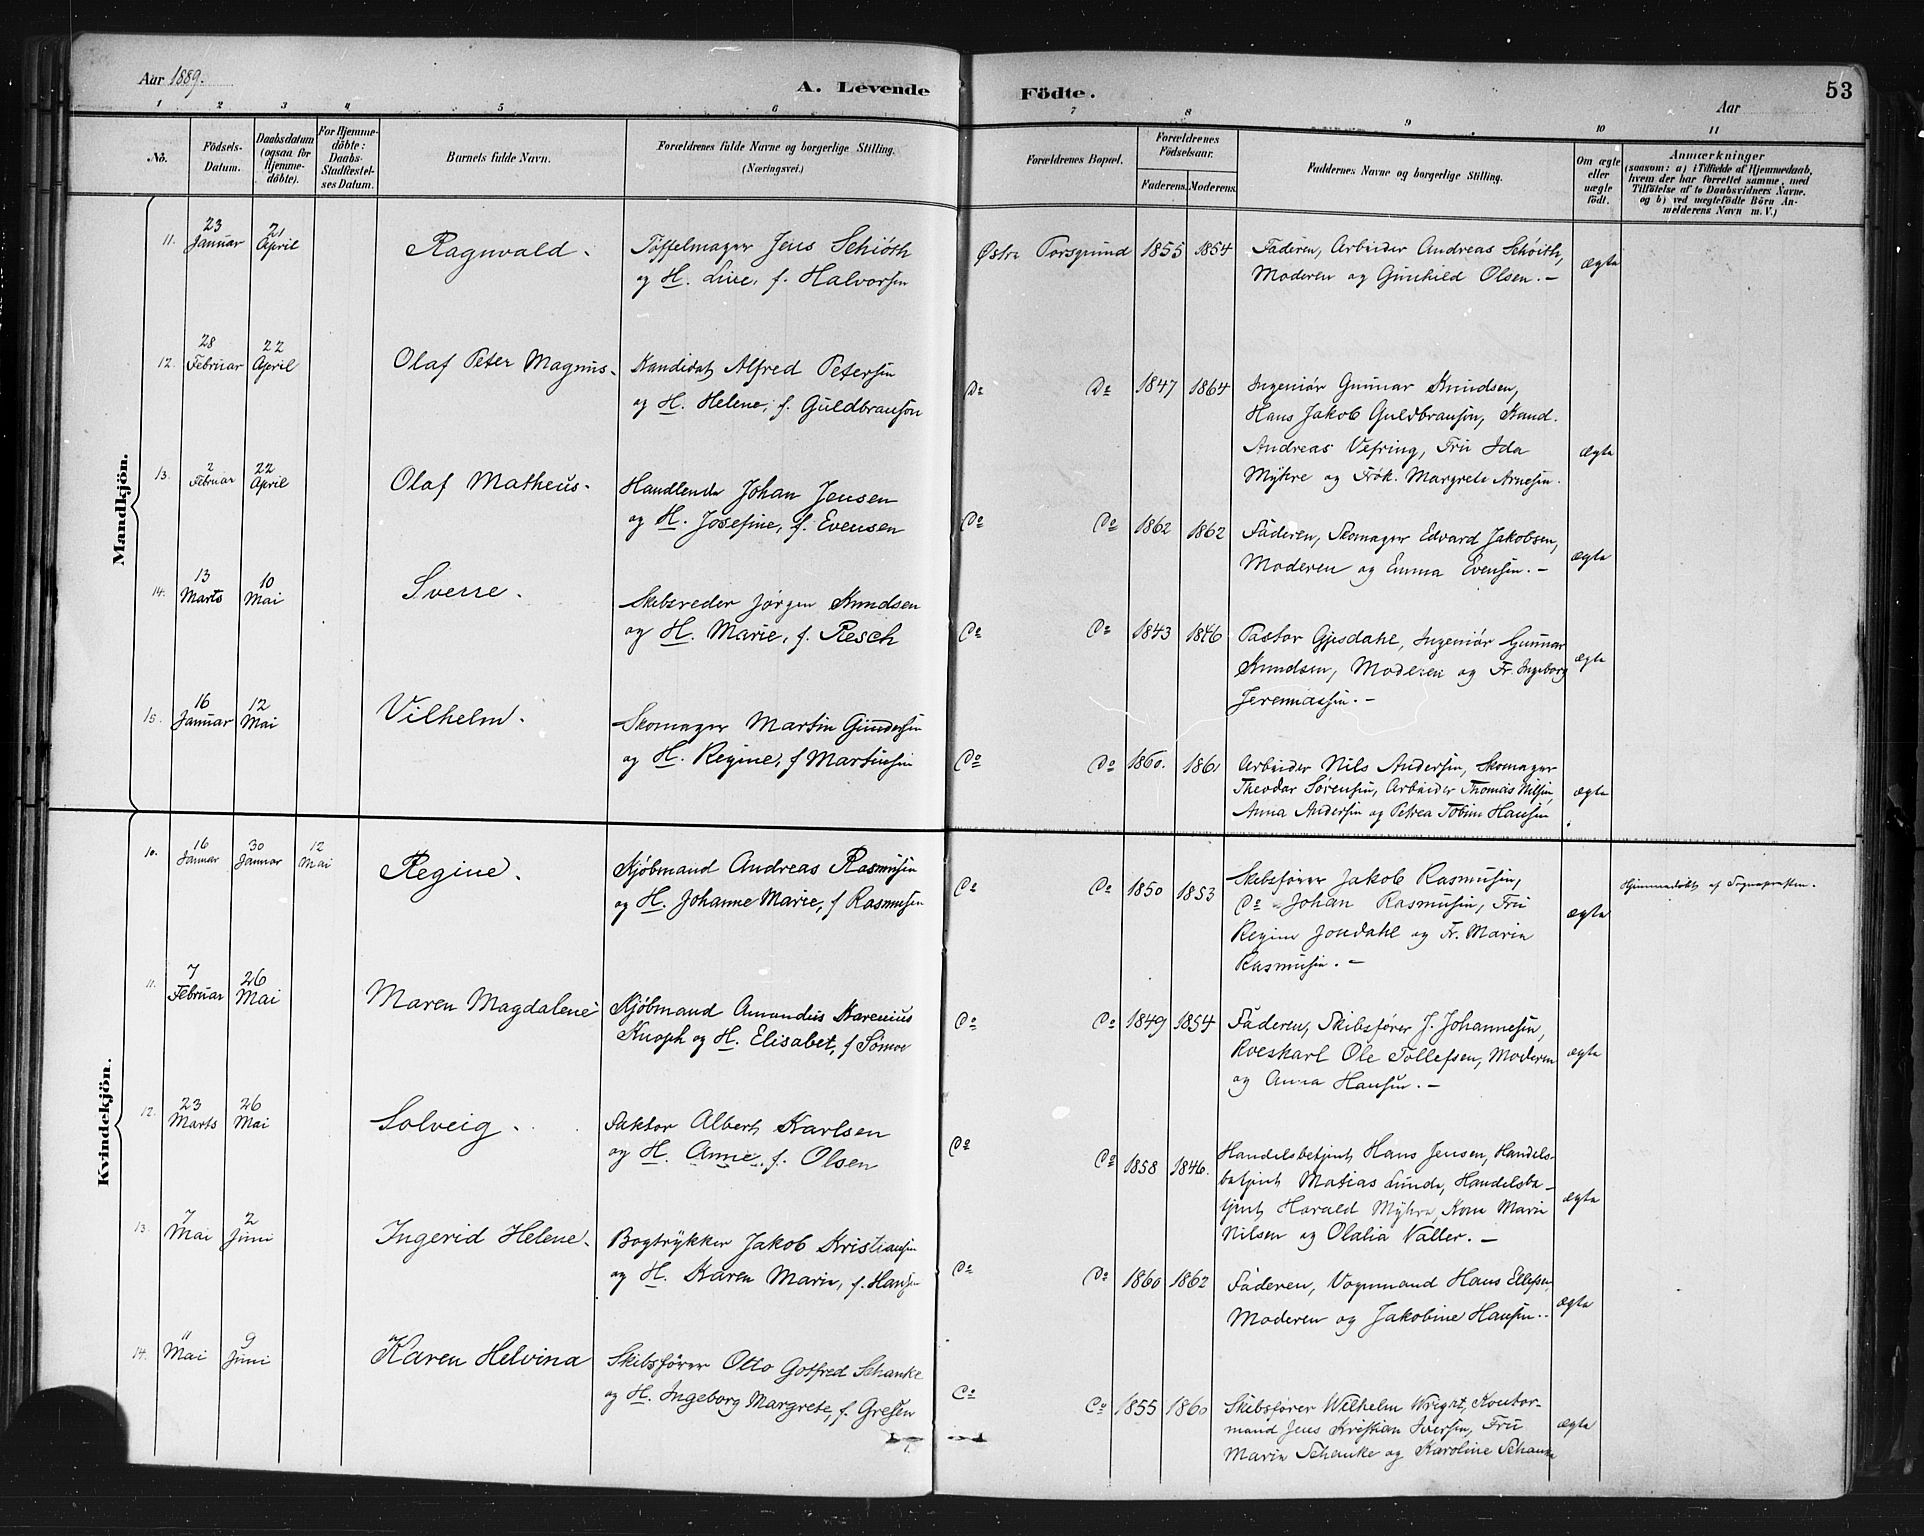 Aar 1889.
A. Levende Födte.
Aar
53
1 2 3 4 5 6 7 8 9 10 11
No.
Födsels-Datum.
Daabsdatum (ogsaa for Hjemme-döbte).
For Hjemme-döbte: Daabs-Stadfæstel-ses Datum.
Barnets fulde Navn.
Forældrenes fulde Navne og borgerlige Stilling.
(Næringsvei.)
Forældrenes Bopæl.
Forældrenes Födselsaar.
Faderens. Moderens.
Faddernes Navne og borgerlige Stilling.
Om ægte eller uægte födt.
Anmærkninger
(saasom: a) i Tilfælde af Hjemmedaab,
hvem der har forrettet samme, med
Tilföielse af to Daabsvidners Navne.
og b) ved uægtefödte Börn An-
melderens Navn m. V.)
Mandkjön.
11. 23 Januar 21 April Ragnvald. Töffelmager Jens Schiöth
og H. Live, f. Halvorsen
Østre Porsgrund 1855 1854 Faderen, Arbeider Andreas Schöith,
Moderen og Gunhild Olsen. — ægte
12. 28 Februar 22 April Olaf Peter Magnus. Kandidat Alfred Petersen
og H. Helene, f. Guldbransen
Do Do 1847 1864 Ingeniör Gunnar Knudsen,
Hans Jakob Guldbransen, Kand.
Andreas Vefring, Fru Ida
Mykre og Frøk. Margrete Arnesen. ægte
13. 2 Februar 22 April Olaf Matheus. Handlende Johan Jensen
og H. Josefine, f. Evensen
Do Do 1862 1862 Faderen, Skomager Edvard Jakobsen,
Moderen og Emma Evensen. — ægte
14. 13 Marts 10 Mai Sverre. Skibsreder Jørgen Knudsen
og H. Marie, f. Resch
Do Do 1843 1846 Pastor Gjesdahl, Ingeniör Gunnar
Knudsen, Moderen og Fr. Ingeborg
Jeremiassen. — ægte
15. 16 Januar 12 Mai Vilhelm. Skomager Martin Gundersen
og H. Regine, f Martinsen
Do Do 1860. 1861 Arbeider Nils Andersen, Skomager
Theodor Sørensen, Arbeider Thomas Nilsen,
Anna Andersen og Petrea Tobine Hansen ægte
Kvindekjön.
10. 16 Januar 30 Januar 12 Mai Regine. Kjøbmand Andreas Rasmusen
og H. Johanne Marie, f Rasmusen
Do Do 1850 1853 Skibsfører Jakob Rasmusen,
Do Johan Rasmusen, Fru
Regine Jondahl og Fr. Marie
Rasmusen. — ægte Hjemmedøbt af Sognepresten.
11. 7 Februar 26 Mai Maren Magdalene Kjøbmand Amandus Karenius
Knoph og H. Elisabet, f
Do Do 1849 1854 Faderen, Skibsfører J. Johannesen,
Ole Tollefsen, Moderen
og Anna Hansen. — ægte
12. 23 Marts 26 Mai Solveig. Faktor Albert Karlsen
og H. Anne, f. Olsen
Do Do 1858 1846. Handelsbetjent Hans Jensen, Handels-
betjent Matias Lunde, Handelsbe-
tjent Harald Mykre, Kone Marie
Nilsen og Olalia Valler. — ægte
13. 7 Mai 2 Juni Ingerid Helene. Bogtrykker Jakob Kristiansen
og H. Karen Marie, f. Hansen
Do Do 1860 1862 Faderen, Vognmand Hans Ellefsen,
Moderen og Jakobine Hansen. ægte
14. 11 Mai 9 Juni Karen Helvina Skibsfører Otto Gotfred Schanke
og H. Ingeborg Margrete, f. Gresen
Do Do 1855 1860 Skibsfører Wilhelm Wright, Kontor-
mand Jens Kristian Iversen, Fru
Marie Schanke og Karoline Schanke ægte